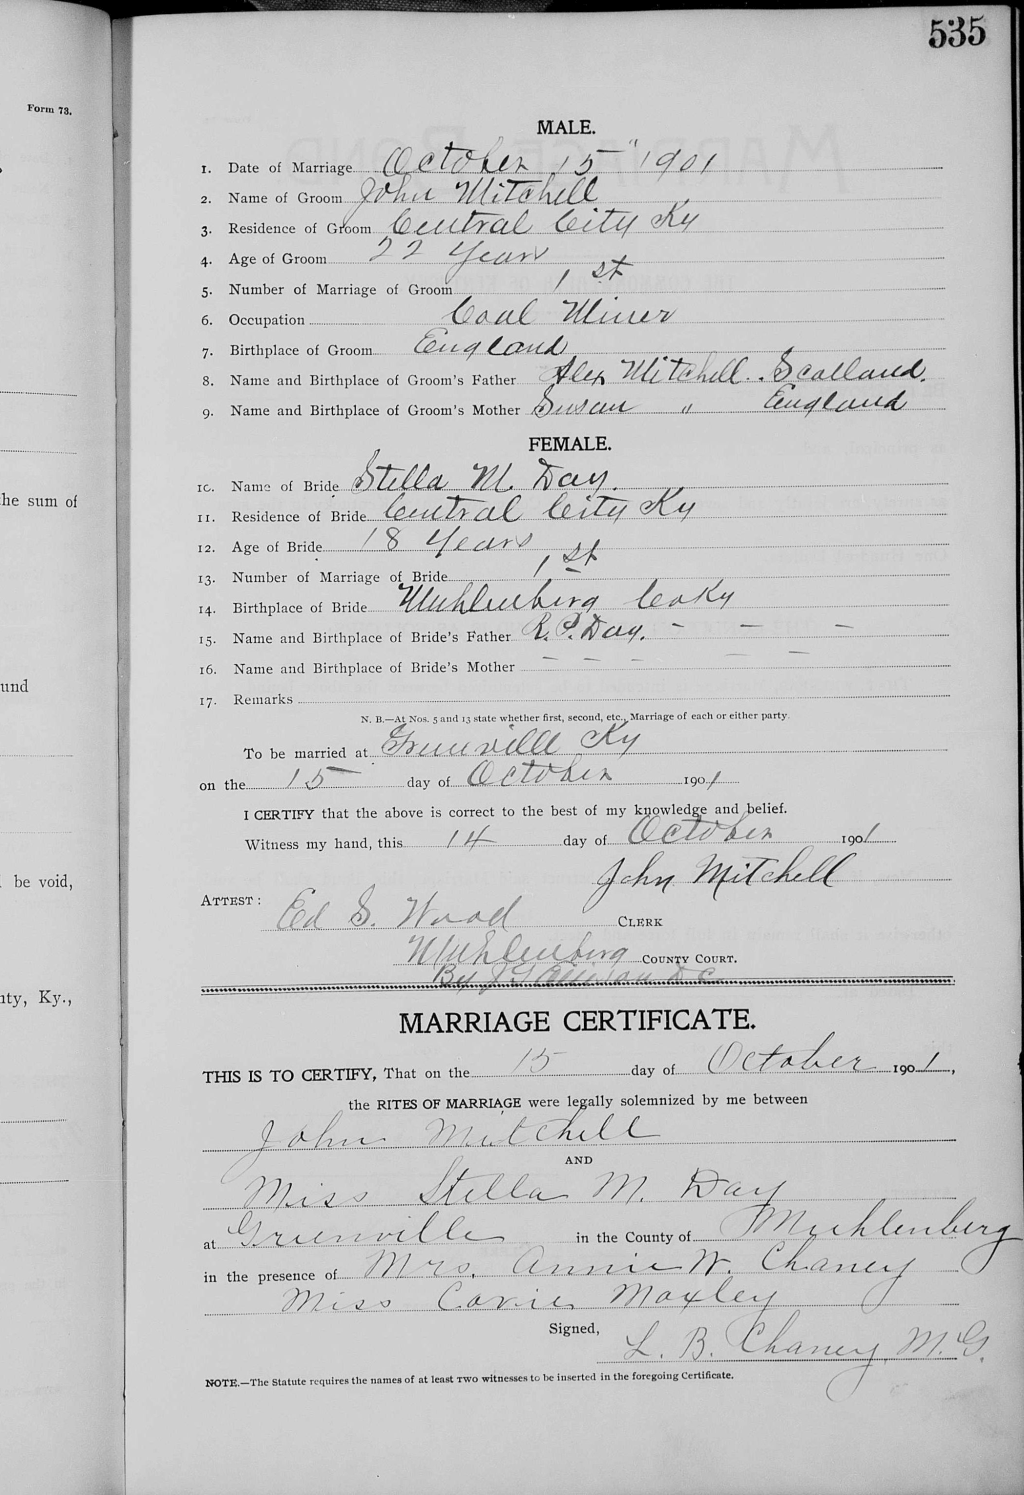 535
Form 73.
MALE.
1. Date of Marriage October 15" 1901
2. Name of Groom John Mitchell
3. Residence of Groom Central City Ky
4. Age of Groom 22 Years
5. Number of Marriage of Groom 1st
6. Occupation Coal Miner
7. Birthplace of Groom England
8. Name and Birthplace of Groom's Father Alex Mitchell. Scotland.
9. Name and Birthplace of Groom's Mother Susan " England
FEMALE.
10. Name of Bride Stella M. Day.
he sum of
11. Residence of Bride Central City Ky
12. Age of Bride 18 Years
13. Number of Marriage of Bride 1st
14. Birthplace of Bride Muhlenberg Co Ky
15. Name and Birthplace of Bride's Father R. P. Day. - - -
16. Name and Birthplace of Bride's Mother - - - - - -
und
17. Remarks
N. B.—At Nos. 5 and 13 state whether first, second, etc., Marriage of each or either party.
To be married at Greenville Ky
on the 15 day of October 1901
I CERTIFY that the above is correct to the best of my knowledge and belief.
Witness my hand, this 14 day of October 1901
be void,
John Mitchell
ATTEST:
Ed S. Wood CLERK
Muhlenberg COUNTY COURT.
By J D.C.
nty, Ky.,
MARRIAGE CERTIFICATE.
THIS IS TO CERTIFY, That on the 15 day of October 1901,
the RITES OF MARRIAGE were legally solemnized by me between
John Mitchell
AND
Miss Stella M. Day
at Greenville in the County of Muhlenberg
in the presence of Mrs. Annie W. Chaney
Miss Moxley
Signed,
L. B. Chaney, M.G.
NOTE.—The Statute requires the names of at least TWO witnesses to be inserted in the foregoing Certificate.